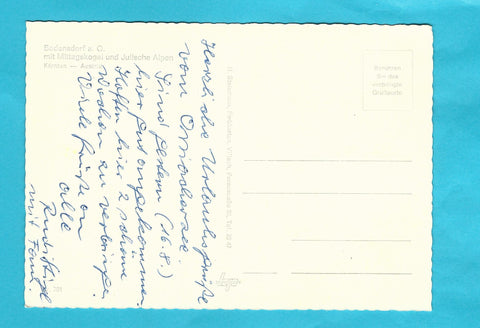 Bodensdorf a. O.
mit Mittagskogel und Julische Alpen
Kärnten — Austria
Herzliche Urlaubsgrüße
vom Ossiachersee.
Sind gestern (16.8.)
hier gut angekommen.
Hoffen hier 2 schöne
Wochen zu verbringen
Viele Grüße an
alle
mit Fam.
Benützen
Sie das
verbilligte
Grußporto
Villach